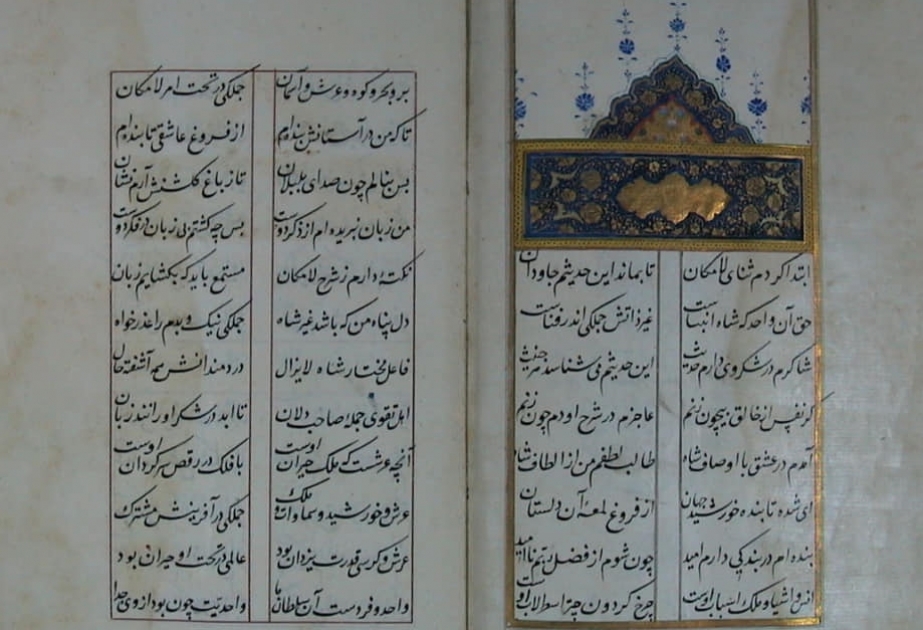 ابتدا کردم ثنای لامکان تا بماند این حدیثم جاودان
حق آن واحد که شاه انبیاست غیر ذاتش جملگی اندر فناست
شاکرم در شکر وی دارم حدیث این حدیثم می شناسد هر خبیث
گر نفس از خالق بیچون زنم عاجزم در شرح او دم چون زنم
آمدم در عشق با اوصاف شاه طالب لطفم من از الطاف شاه
ای شده تابنده خورشید جهان از فروغ لمعهٔ آن دلستان
بنده ام در بندگی دارم امید چون شوم از فضل ربّم ناامید
انس و اشیا و ملک اسباب اوست چرخ گردون چتر اسطرلاب اوست
بر و بحر و کوه و عرش و آسمان جملگی در تحت امر لامکان
تا که من در آستانش بنده ام از فروغ عاشقی تابنده ام
بس بنالم چون صدای بلبلان تا ز باغ گلشنش آرم نشان
من زبان نبریده ام از ذکر دوست بس چه گشتم بی زبان در فکر دوست
نکتهٔ دارم ز شرح لامکان مستمع باید که بگشایم زبان
دل پناه من که باشد غیر شاه جملگی نیک و بدم را عذرخواه
فاعل مختار شاه لایزال دردمندانش همه آشفته حال
اهل تقوی جمله صاحب دلان تا ابد در شکر او رانند زبان
آنچه عرشست که ملک حیران اوست با فلک در رقص سرگردان اوست
عرش و خورشید و سماوات و ملک جملگی در آفرینش مشترک
عرش و کرسی قدرت یزدان بود عالمی در تحت او حیران بود
واحد و فردست آن سلطان ما واحدیّت چون بود از وی جدا